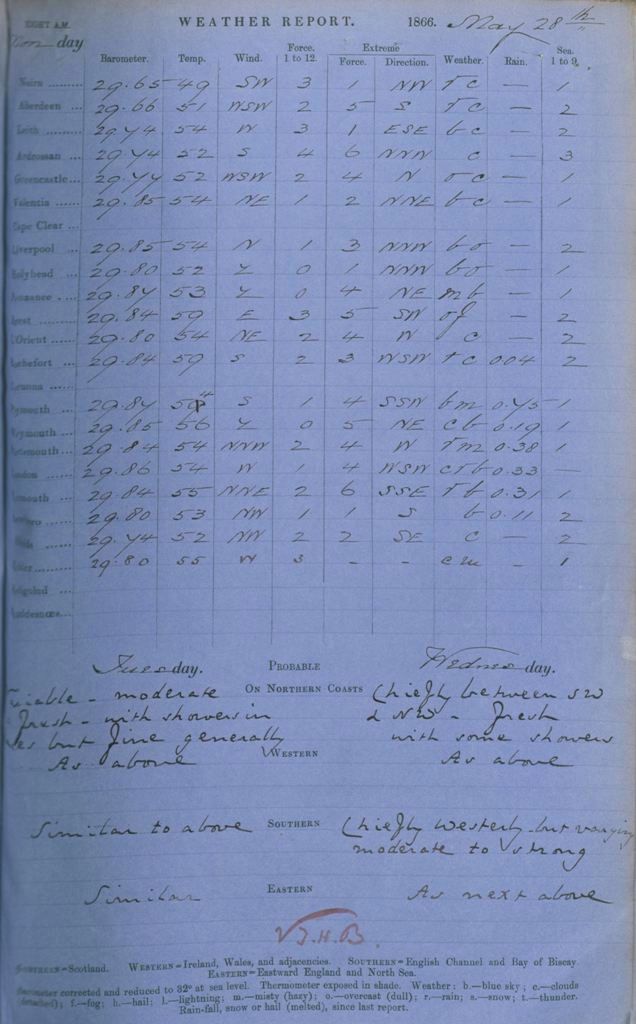 EIGHT A.M. WEATHER REPORT. 1866. May 28th
Mon day
Barometer. Temp. Wind. Force. 1 to 12. Extreme Force. Direction. Weather. Rain. Sea. 1 to 9.
Nairn 29.65 49 SW 3 1 NW r c — 1
Aberdeen 29.66 51 WSW 2 5 S r c — 2
Leith 29.74 54 W 3 1 ESE b c — 2
Ardrossan 29.74 52 S 4 6 NNW c — 3
Greencastle 29.77 52 WSW 2 4 N o c — 1
Valentia 29.85 54 NE 1 2 NNE b c — 1
Cape Clear
Liverpool 29.85 54 N 1 3 NNW b o — 2
Holyhead 29.80 52 Z 0 1 NNW b o — 1
Penzance 29.87 53 Z 0 4 NE m b — 1
Brest 29.84 59 E 3 5 SW o f — 2
L'Orient 29.80 54 NE 2 4 W c — 2
Rochefort 29.84 59 S 2 3 WSW r c 0.04 2
Plymouth 29.87 54 S 1 4 SSW b m 0.45 1
Weymouth 29.85 56 Z 0 5 NE c b 0.19 1
Portsmouth 29.84 54 NNW 2 4 W r m 0.38 1
London 29.86 54 W 1 4 WSW c r b 0.33 —
Yarmouth 29.84 55 NNE 2 6 SSE r b 0.31 1
Scarboro 29.80 53 NW 1 1 S b 0.11 2
29.74 52 NW 2 2 SE c — 2
Helder 29.80 55 W 3 - - c m - 1
Heligoland
Skuddesnaes
Tues day. PROBABLE Wednes day.
Variable - moderate ON NORTHERN COASTS Chiefly between SW
fresh - with showers in & NW - fresh
but fine generally with some showers
As above WESTERN As above
Similar to above SOUTHERN Chiefly Westerly but varying
moderate to strong
Similar EASTERN As next above
NORTHERN=Scotland. WESTERN=Ireland, Wales, and adjacencies. SOUTHERN=English Channel and Bay of Biscay.
EASTERN=Eastward England and North Sea.
Barometer corrected and reduced to 32° at sea level. Thermometer exposed in shade. Weather: b.—blue sky; c.—clouds
(detached); f.—fog; h.—hail; l.—lightning; m.—misty (hazy); o.—overcast (dull); r.—rain; s.—snow; t.—thunder.
Rain-fall, snow or hail (melted), since last report.